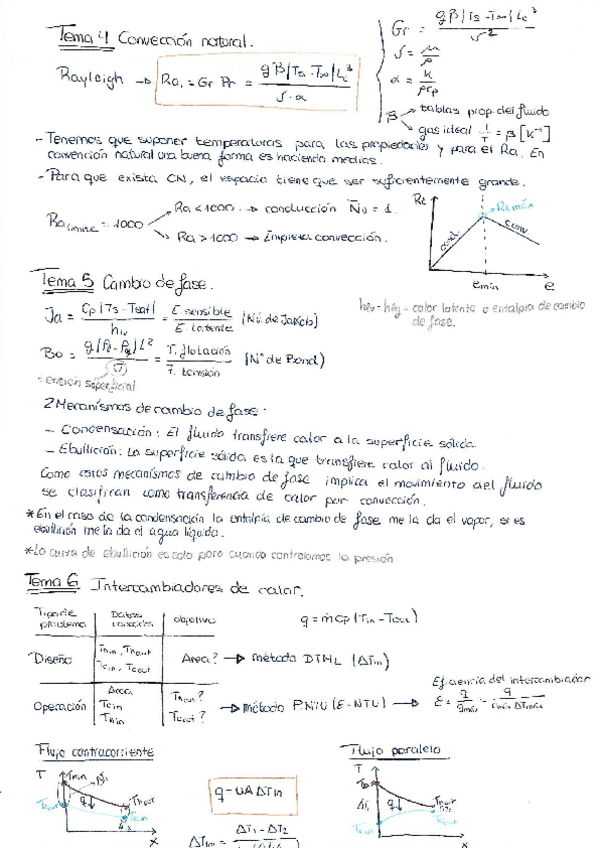 Tema 4 Convección natural.
Rayleigh → Ra = Gr Pr = gβ|Ts - T∞|Lc³ / ν·α
Gr = gβ|Ts - T∞|Lc³ / ν²
ν = μ/ρ
α = k/ρcp
β → tablas prop. del fluido
→ gas ideal 1/T = β [K⁻¹]
- Tenemos que suponer temperaturas para las propiedades y para el Ra. En
convección natural una buena forma es haciendo medias.
- Para que exista CN, el espacio tiene que ser suficientemente grande.
Ra = 1000
Ra < 1000 → conducción Nu = 1.
Ra > 1000 → Empieza convección.
Rt
cond
conv
emin
e
Tema 5 Cambio de fase.
Ja = Cp|Ts - Tsat| / hlv = E sensible / E. latente (Nú. de Jakob)
hlv = hfg = calor latente o entalpia de cambio
de fase.
Bo = g(ρl - ρv)L² / σ = T. flotación / T. tensión (Nº de Bond)
tensión superficial
2 Mecanismos de cambio de fase:
- Condensación: El fluido transfiere calor a la superficie sólida.
- Ebullición: La superficie sólida es la que transfiere calor al fluido.
Como estos mecanismos de cambio de fase implica el movimiento del fluido
se clasifican como transferencia de calor por convección.
* En el caso de la condensación la entalpia de cambio de fase me la da el vapor, si es
ebullición me la da el agua líquida.
* La curva de ebullición es solo para cuando controlamos la presión
Tema 6 Intercambiadores de calor.
Tipo de problema
Datos conocidos
objetivo
q = ṁCp(Tin - Tout)
Diseño
Thin, Thout
Tcin, Tcout
Area? → método DTML (ΔTln)
Operación
Area
Tcin
Thin
Thout?
Tcout?
→ método P-NTU (E-NTU) →
Eficiencia del intercambiador
ε = q/qmáx = q / Cmín ΔTmáx
Flujo contracorriente
Flujo paralelo
T
Thin
Thout
Tcout
Tcin
q
x
q = UAΔTln
ΔTln = ΔT1 - ΔT2
T
q
Thout
Tcin
x